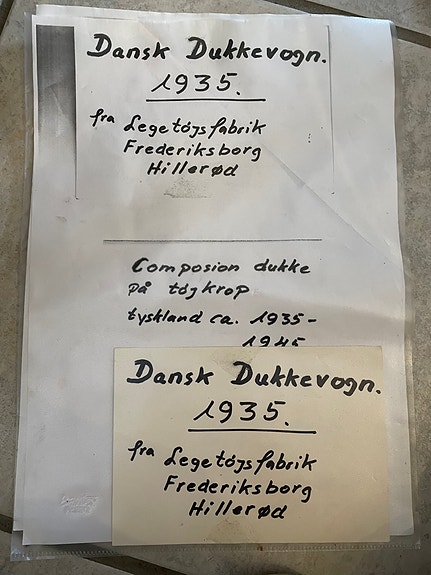 Dansk Dukkevogn.
1935.
fra Legetøjsfabrik
Frederiksborg
Hillerød
Composion dukke
på tøjkrop
tyskland ca. 1935-
1945
Dansk Dukkevogn.
1935.
fra Legetøjsfabrik
Frederiksborg
Hillerød